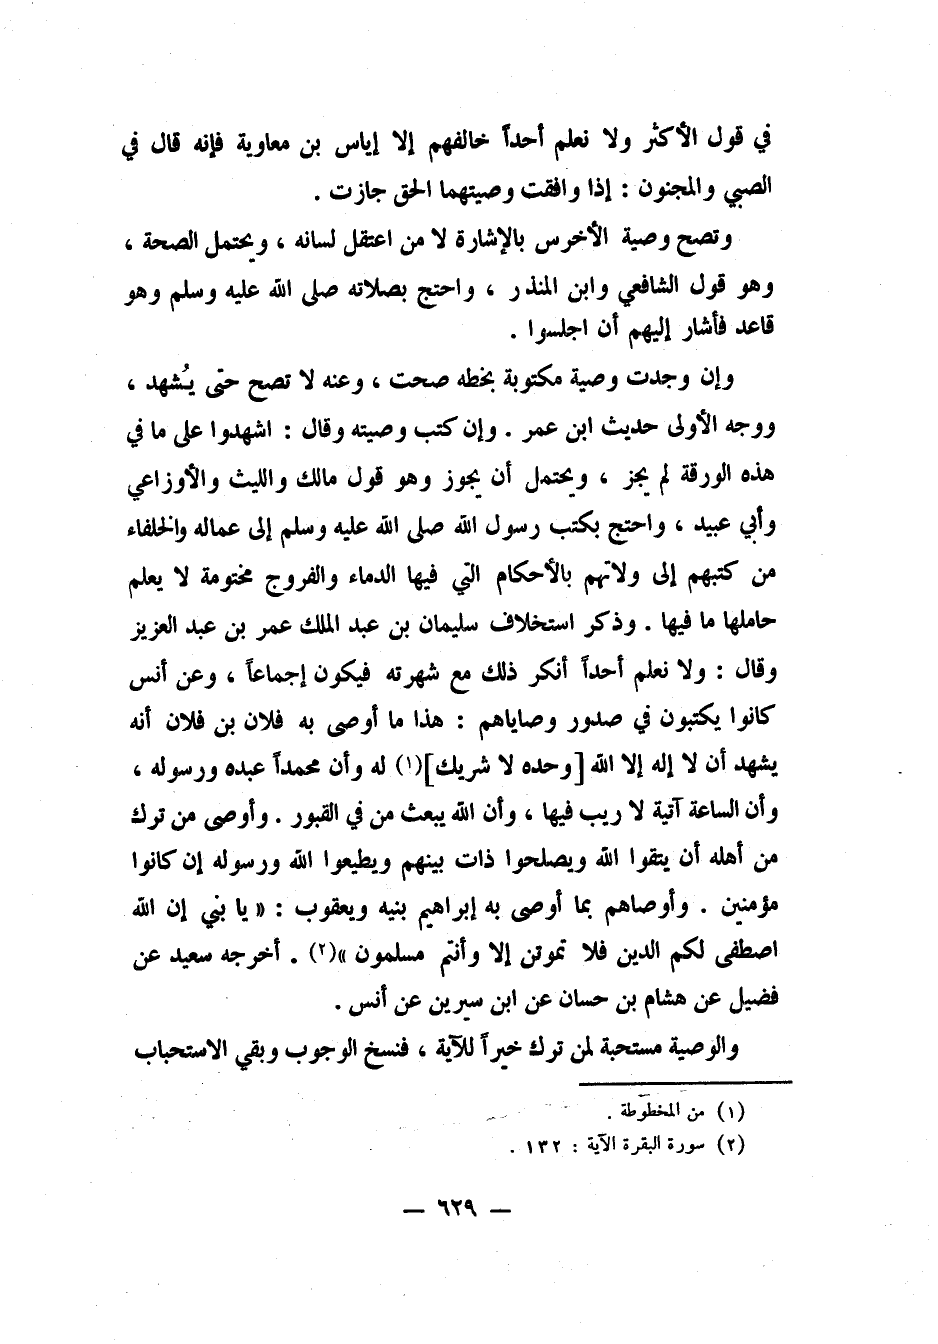 في قول الأكثر ولا نعلم أحداً خالفهم إلا إياس بن معاوية فإنه قال في
الصبي والمجنون : إذا وافقت وصيتهما الحق جازت .
وتصح وصية الأخرس بالإشارة لا من اعتقل لسانه ، ويحتمل الصحة ،
وهو قول الشافعي وابن المنذر ، واحتج بصلاته صلى الله عليه وسلم وهو
قاعد فأشار إليهم أن اجلسوا .
وإن وجدت وصية مكتوبة بخطه صحت ، وعنه لا تصح حتى يُشهد ،
ووجه الأولى حديث ابن عمر . وإن كتب وصيته وقال : اشهدوا على ما في
هذه الورقة لم يجز ، ويحتمل أن يجوز وهو قول مالك والليث والأوزاعي
وأبي عبيد ، واحتج بكتب رسول الله صلى الله عليه وسلم إلى عماله والخلفاء
من كتبهم إلى ولاتهم بالأحكام التي فيها الدماء والفروج مختومة لا يعلم
حاملها ما فيها . وذكر استخلاف سليمان بن عبد الملك عمر بن عبد العزيز
وقال : ولا نعلم أحداً أنكر ذلك مع شهرته فيكون إجماعاً ، وعن أنس
كانوا يكتبون في صدور وصاياهم : هذا ما أوصى به فلان بن فلان أنه
يشهد أن لا إله إلا الله [وحده لا شريك](١) له وأن محمداً عبده ورسوله ،
وأن الساعة آتية لا ريب فيها ، وأن الله يبعث من في القبور . وأوصى من ترك
من أهله أن يتقوا الله ويصلحوا ذات بينهم ويطيعوا الله ورسوله إن كانوا
مؤمنين . وأوصاهم بما أوصى به إبراهيم بنيه ويعقوب : « يا بني إن الله
اصطفى لكم الدين فلا تموتن إلا وأنتم مسلمون »(٢) . أخرجه سعيد عن
فضيل عن هشام بن حسان عن ابن سيرين عن أنس .
والوصية مستحبة لمن ترك خيراً للآية ، فنسخ الوجوب وبقي الاستحباب
(١) من المخطوطة .
(٢) سورة البقرة الآية : ١٣٢ .
— ٦٢٩ —